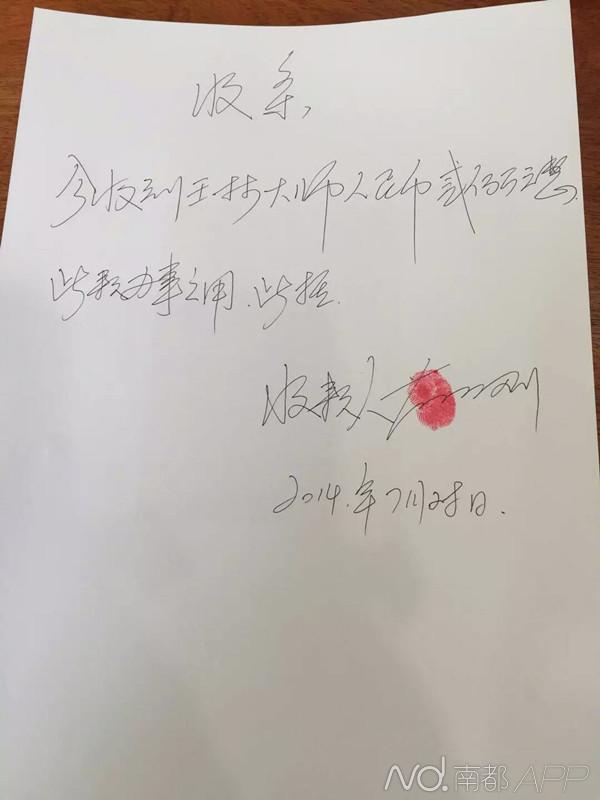 收条,
今收到王林大师人民币贰佰万元整.
此款办事之用.此据.
收款人
2014.年7月28日.
Nd.南都APP